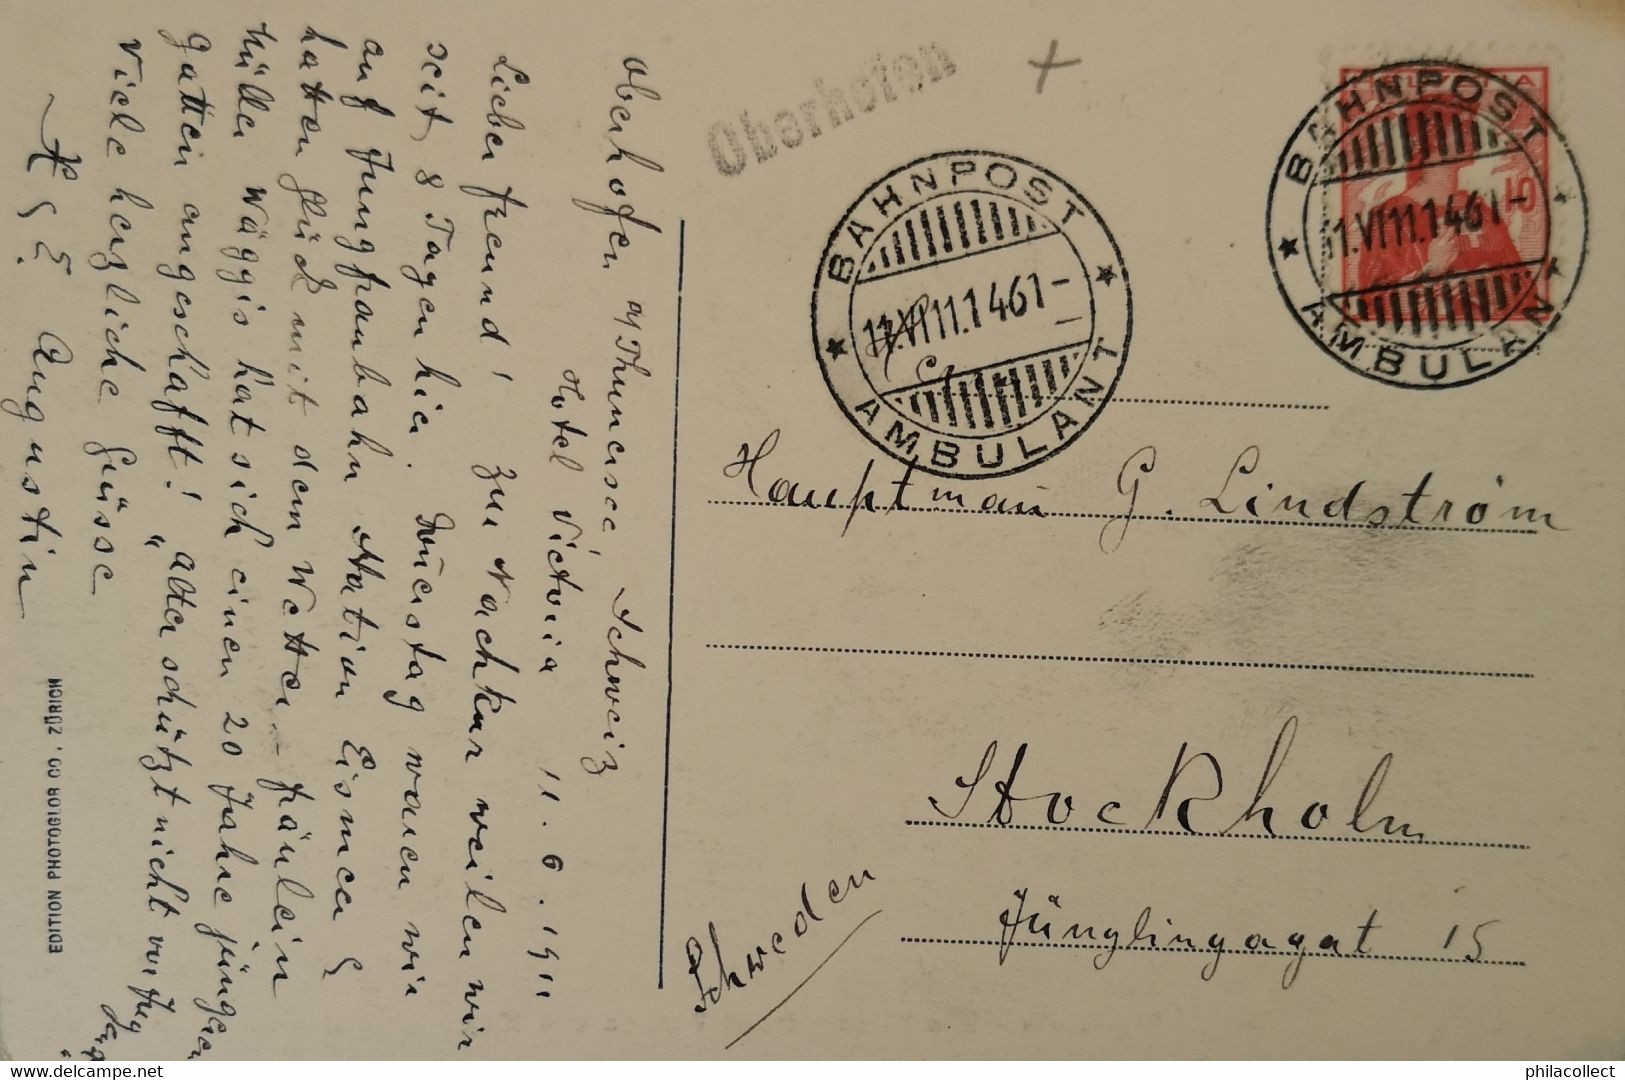 Oberhofen a/Thunersee, Schweiz
Hotel Victoria 11.6.1911
Lieber Freund! Zur Nachkur weilen wir
seit 8 Tagen hier. Dienstag waren wir
auf Jungfraubahn Station Eismeer &
hatten Glück mit dem Wetter - Fräulein
Müller Wäggis hat sich einen 20 Jahre jüngeren
Gatten angeschafft! "Alter schützt nicht vor
Viele herzliche Grüsse
& E. Augustin
EDITION PHOTOGLOB CO., ZÜRICH
Oberhofen
BAHNPOST
11.VI11.1461-
AMBULANT
HELVETIA
BAHNPOST
11.VI11.1461-
AMBULANT
Hauptman G. Lindström
Stockholm
Jünglingagat 15
Schweden
philacollect